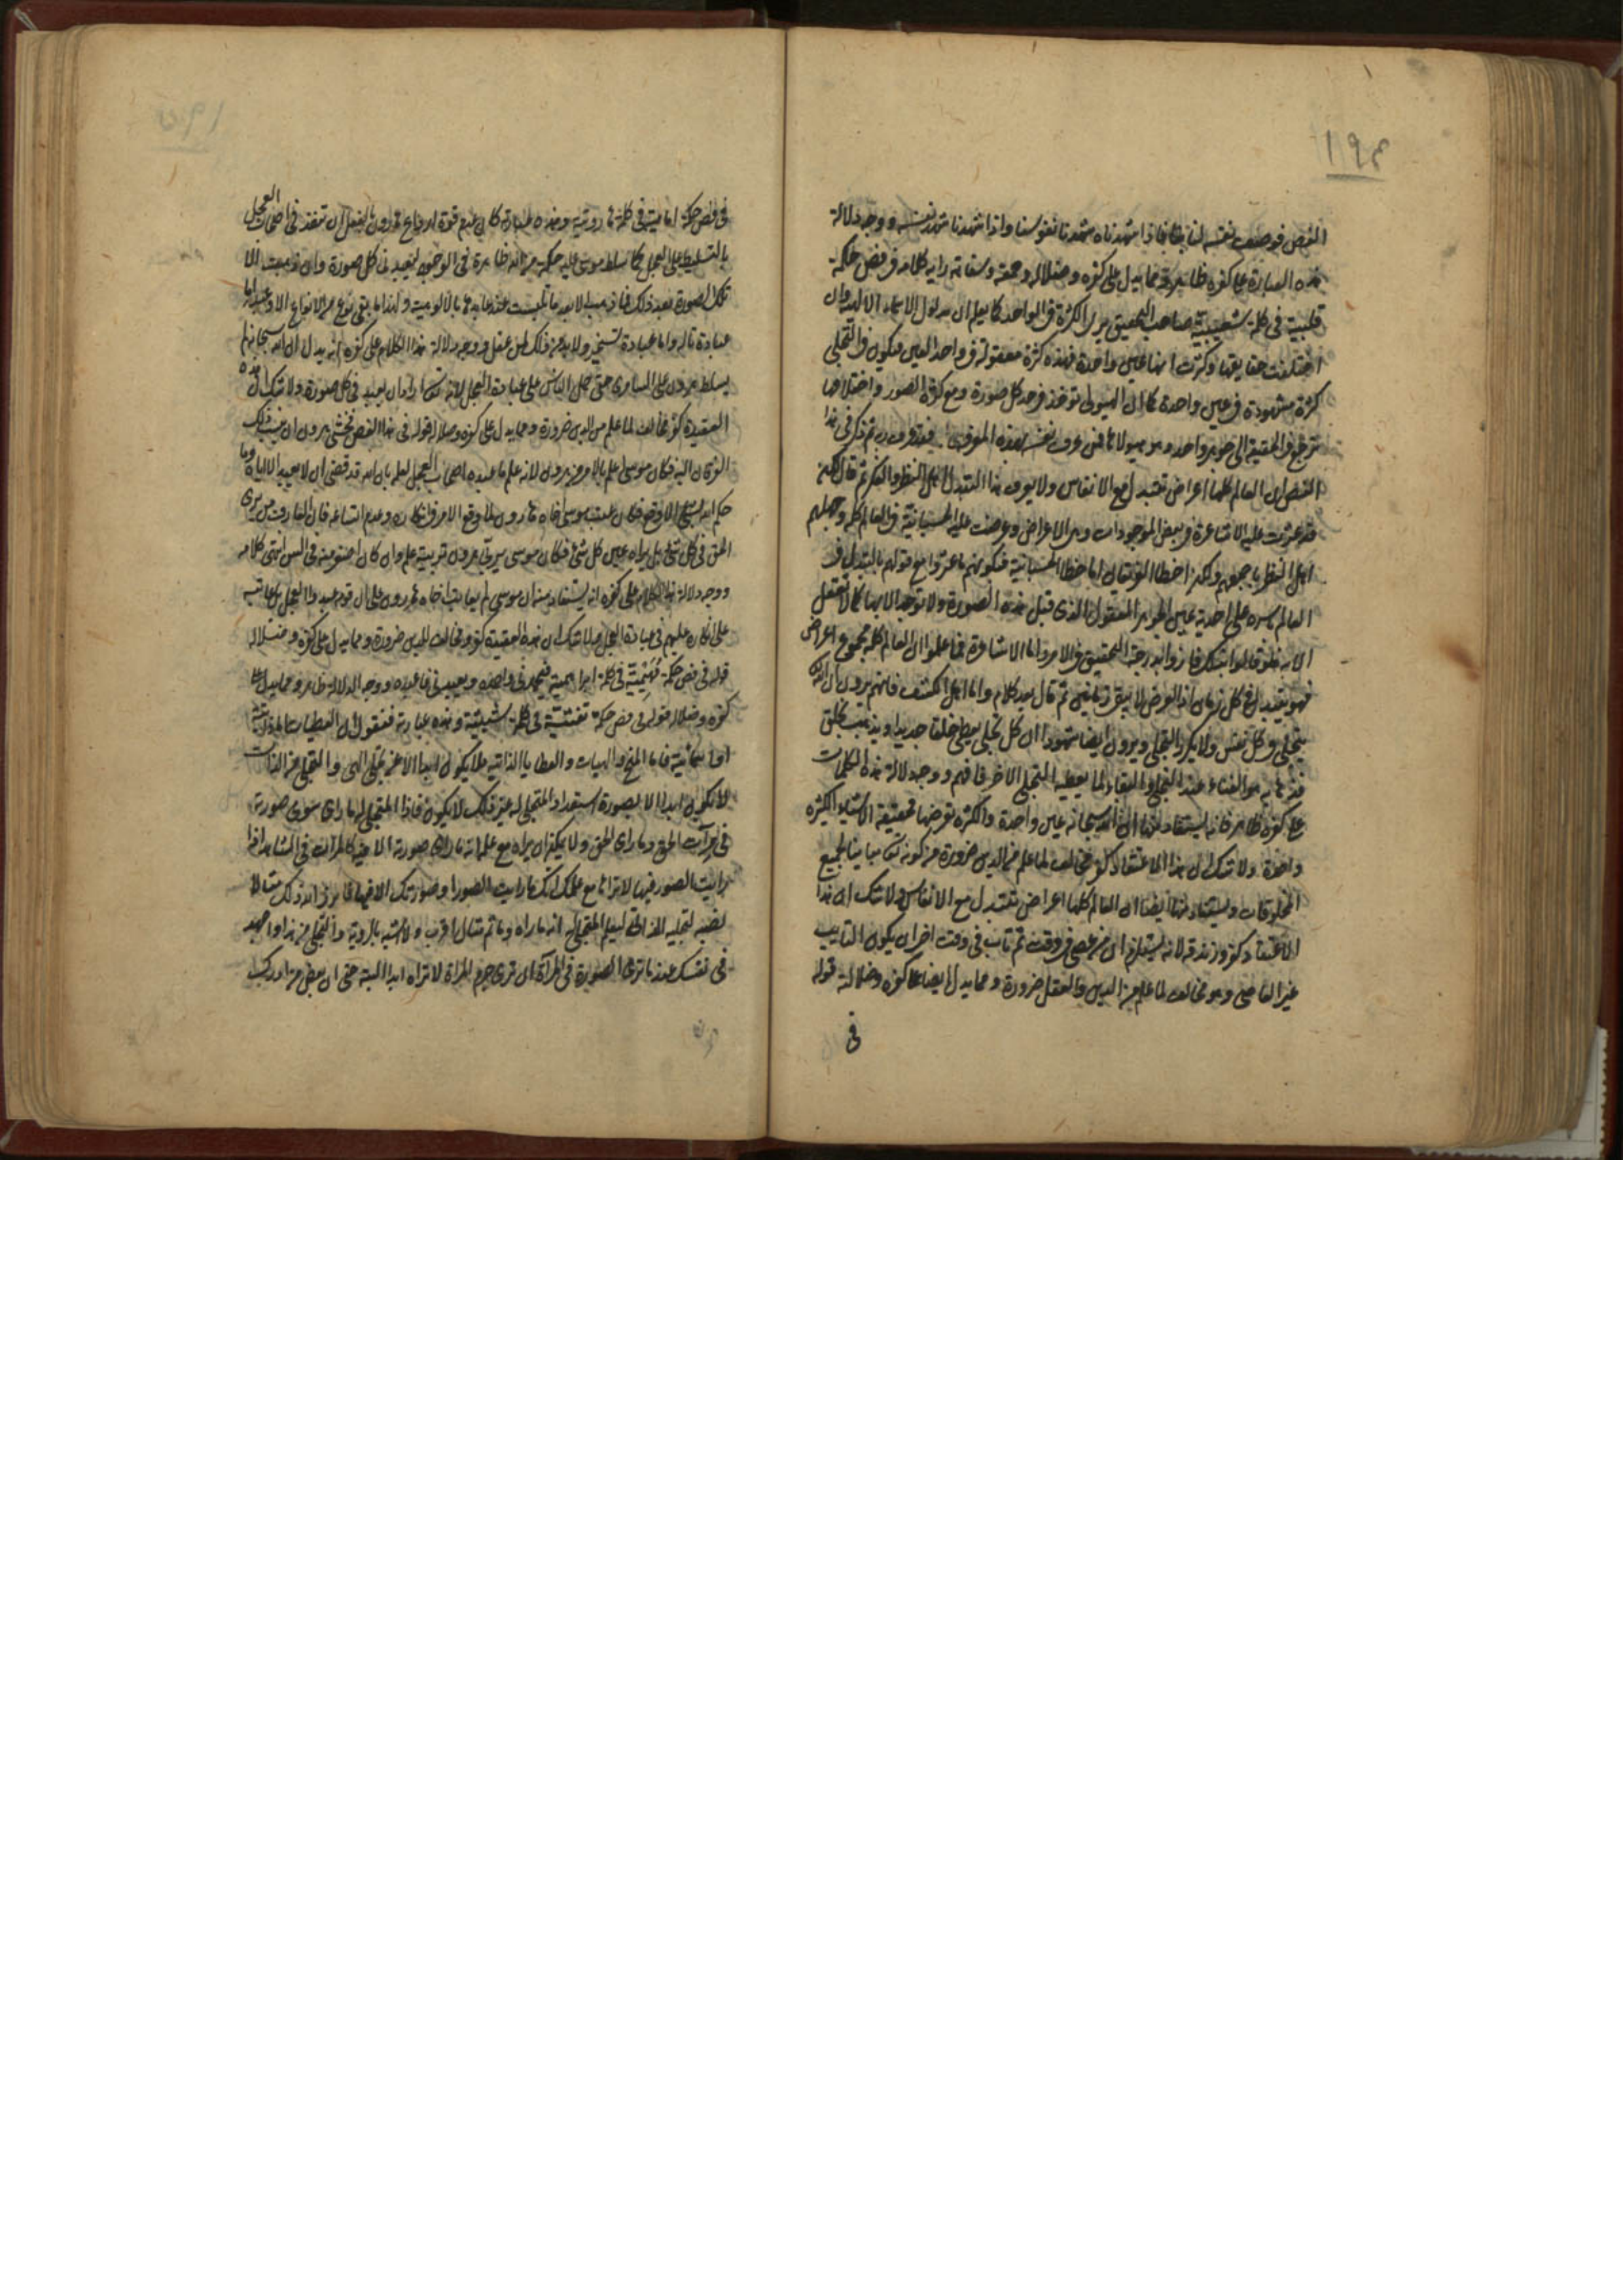 ١٩٣
الفص فوصف نفسه لنا بنا فاذا شهدناه شهدنا نفوسنا واذا شهدنا شهد نفسه ووجه دلالة
هذه العبارة على كفره ظاهرة ومما يدل على كفره وضلاله وحمقه وسفاهة رايه كلامه فى فص حكمة
قلبية فى كلمة شعيبية صاحب التحقيق يرى الكثرة فى الواحد كما يعلم ان مدلول الاسماء الالهية وان
اختلفت حقايقها وكثرت انها عين واحدة فهذه كثرة معقولة فى واحد العين فيكون فى التجلى
كثرة مشهودة فى عين واحدة كما ان الهيولى تؤخذ فى حد كل صورة ومع كثرة الصور واختلافها
ترجع فى الحقيقة الى جوهر واحد وهو هيولاها فمن عرف نفسه بهذه المعرفة فقد عرف ربه ثم ذكر فى هذا
الفص ان العالم كلها اعراض تتبدل مع الانفاس ولا يعرف هذا التبدل اهل النظر والفكر ثم قال لكن
قد عثرت عليه الاشاعرة فى بعض الموجودات وهى الاعراض وعرضت عليه الحسبانية فى العالم كله وجهلهم
اهل النظر باجمعهم ولكن اخطا الفريقان اما خطا الحسبانية فبكونهم ما عثروا مع قولهم بالتبدل فى
العالم باسره على احدية عين الجوهر المعقول الذى قبل هذه الصورة ولا توجد الا بها كما لا تعقل
الا به فلو قالوا بذلك فازوا بدرجة التحقيق فى الامر واما الاشاعرة فما علموا ان العالم كله مجموع اعراض
فهو يتبدل فى كل زمان اذ العرض لا يبقى زمانين ثم قال بعد كلام واما اهل الكشف فانهم يرون ان الله
يتجلى فى كل نفس ولا يكرر التجلى ويرون ايضا شهودا ان كل تجلى يعطى خلقا جديدا ويذهب بخلق
فذهابه هو الفناء عند التجلى والبقاء لما يعطيه التجلى الاخر فافهم ووجه دلالة هذه الكلمات
على كفره ظاهر فانه يستفاد منها ان الله سبحانه عين واحدة والكثرة تعرضها فحقيقة الاشياء الكثيره
واحدة ولا شك ان هذا الاعتقاد كفر مخالف لما علم من الدين ضرورة من كونه تعالى مباينا لجميع
المخلوقات ويستفاد منها ايضا ان العالم كلها اعراض تتبدل مع الانفاس ولا شك ان هذا
الاعتقاد كفر وزندقة لانه يستلزم ان من عصى فى وقت ثم تاب فى وقت اخر ان يكون التايب
غير العاصى وهو مخالف لما علم من الدين والعقل ضرورة ومما يدل ايضا على كفره وضلالته قوله
فى
فى فص حكمة امامية فى كلمة هارونية وهذه عبارته كان عدم قوة ارداع هارون بالفعل ان تنفذ فى اصحاب العجل
بالتسليط على العجل كما سلط موسى عليه حكمة من الله ظاهرة فى الوجود ليعبد فى كل صورة وان ذهبت
تلك الصورة بعد ذلك فما ذهبت الا بعد ما تلبست عند عابدها بالالوهية ولهذا ما بقى نوع من الانواع الا وعبد اما
عبادة تاله واما عبادة تسخير ولا بد من ذلك لمن عقل ووجه دلالة هذا الكلام على كفره انه يدل ان الله سبحانه لم
يسلط هارون على السامرى حتى حمل الناس على عبادة العجل لانه تعالى اراد ان يعبد فى كل صورة ولا شك ان هذه
العقيدة كفر مخالف لما علم من الدين ضرورة ومما يدل على كفره وضلاله قوله فى هذا الفص فخشى هرون ان ينسب ذلك
الفرقان اليه فكان موسى اعلم بالامر من هرون لانه علم ما عبده اصحاب العجل لعلمه بان الله قد قضى ان لا يعبد الا اياه وما
حكم الله بشئ الا وقع فكان عتب موسى اخاه هارون لما وقع الامر فى انكاره وعدم اتساعه فان العارف من يرى
الحق فى كل شئ بل يراه عين كل شئ فكان موسى يربى هرون تربية علم وان كان اصغر منه فى السن انتهى كلامه
ووجه دلالة هذا الكلام على كفره انه يستفاد منه ان موسى لم يعاتب اخاه هارون على ان قومه عبدوا العجل بل عاتبه
على انكاره عليهم فى عبادة العجل ولا شك ان هذه العقيدة كفر ومخالف للدين ضرورة ومما يدل على كفره وضلاله
قوله فى فص حكمة مهيمية فى كلمة ابراهيمية فيحمدنى واحمده ويعبدنى فاعبده ووجه الدلالة ظاهر ومما يدل على
كفره وضلاله قوله فى فص حكمة نفثية فى كلمة شيثية وهذه عبارته فنقول ان العطيات اما ذاتية
او اسمائية فاما المنح والهبات والعطايا الذاتية فلا يكون ابدا الا عن تجلى الهى والتجلى من الذات
لا يكون ابدا الا بصورة استعداد المتجلى له غير ذلك لا يكون فاذا المتجلى له ما راى سوى صورته
فى مرآت الحق وما راى الحق ولا يمكن ان يراه مع علمه انه ما راى صورته الا فيه كالمرآت فى الشاهد اذا
رايت الصور فيها لا تراها مع علمك انك ما رايت الصور او صورتك الا فيها فابرز الله ذلك مثالا
نصبه لتجليه الذاتى ليعلم المتجلى له انه ما راه وما ثم مثال اقرب ولا اشبه بالروية والتجلى من هذا واجهد
فى نفسك عند ما ترى الصورة فى المرآة ان ترى جرم المراة لا تراه ابدا البتة حتى ان بعض من ادرك